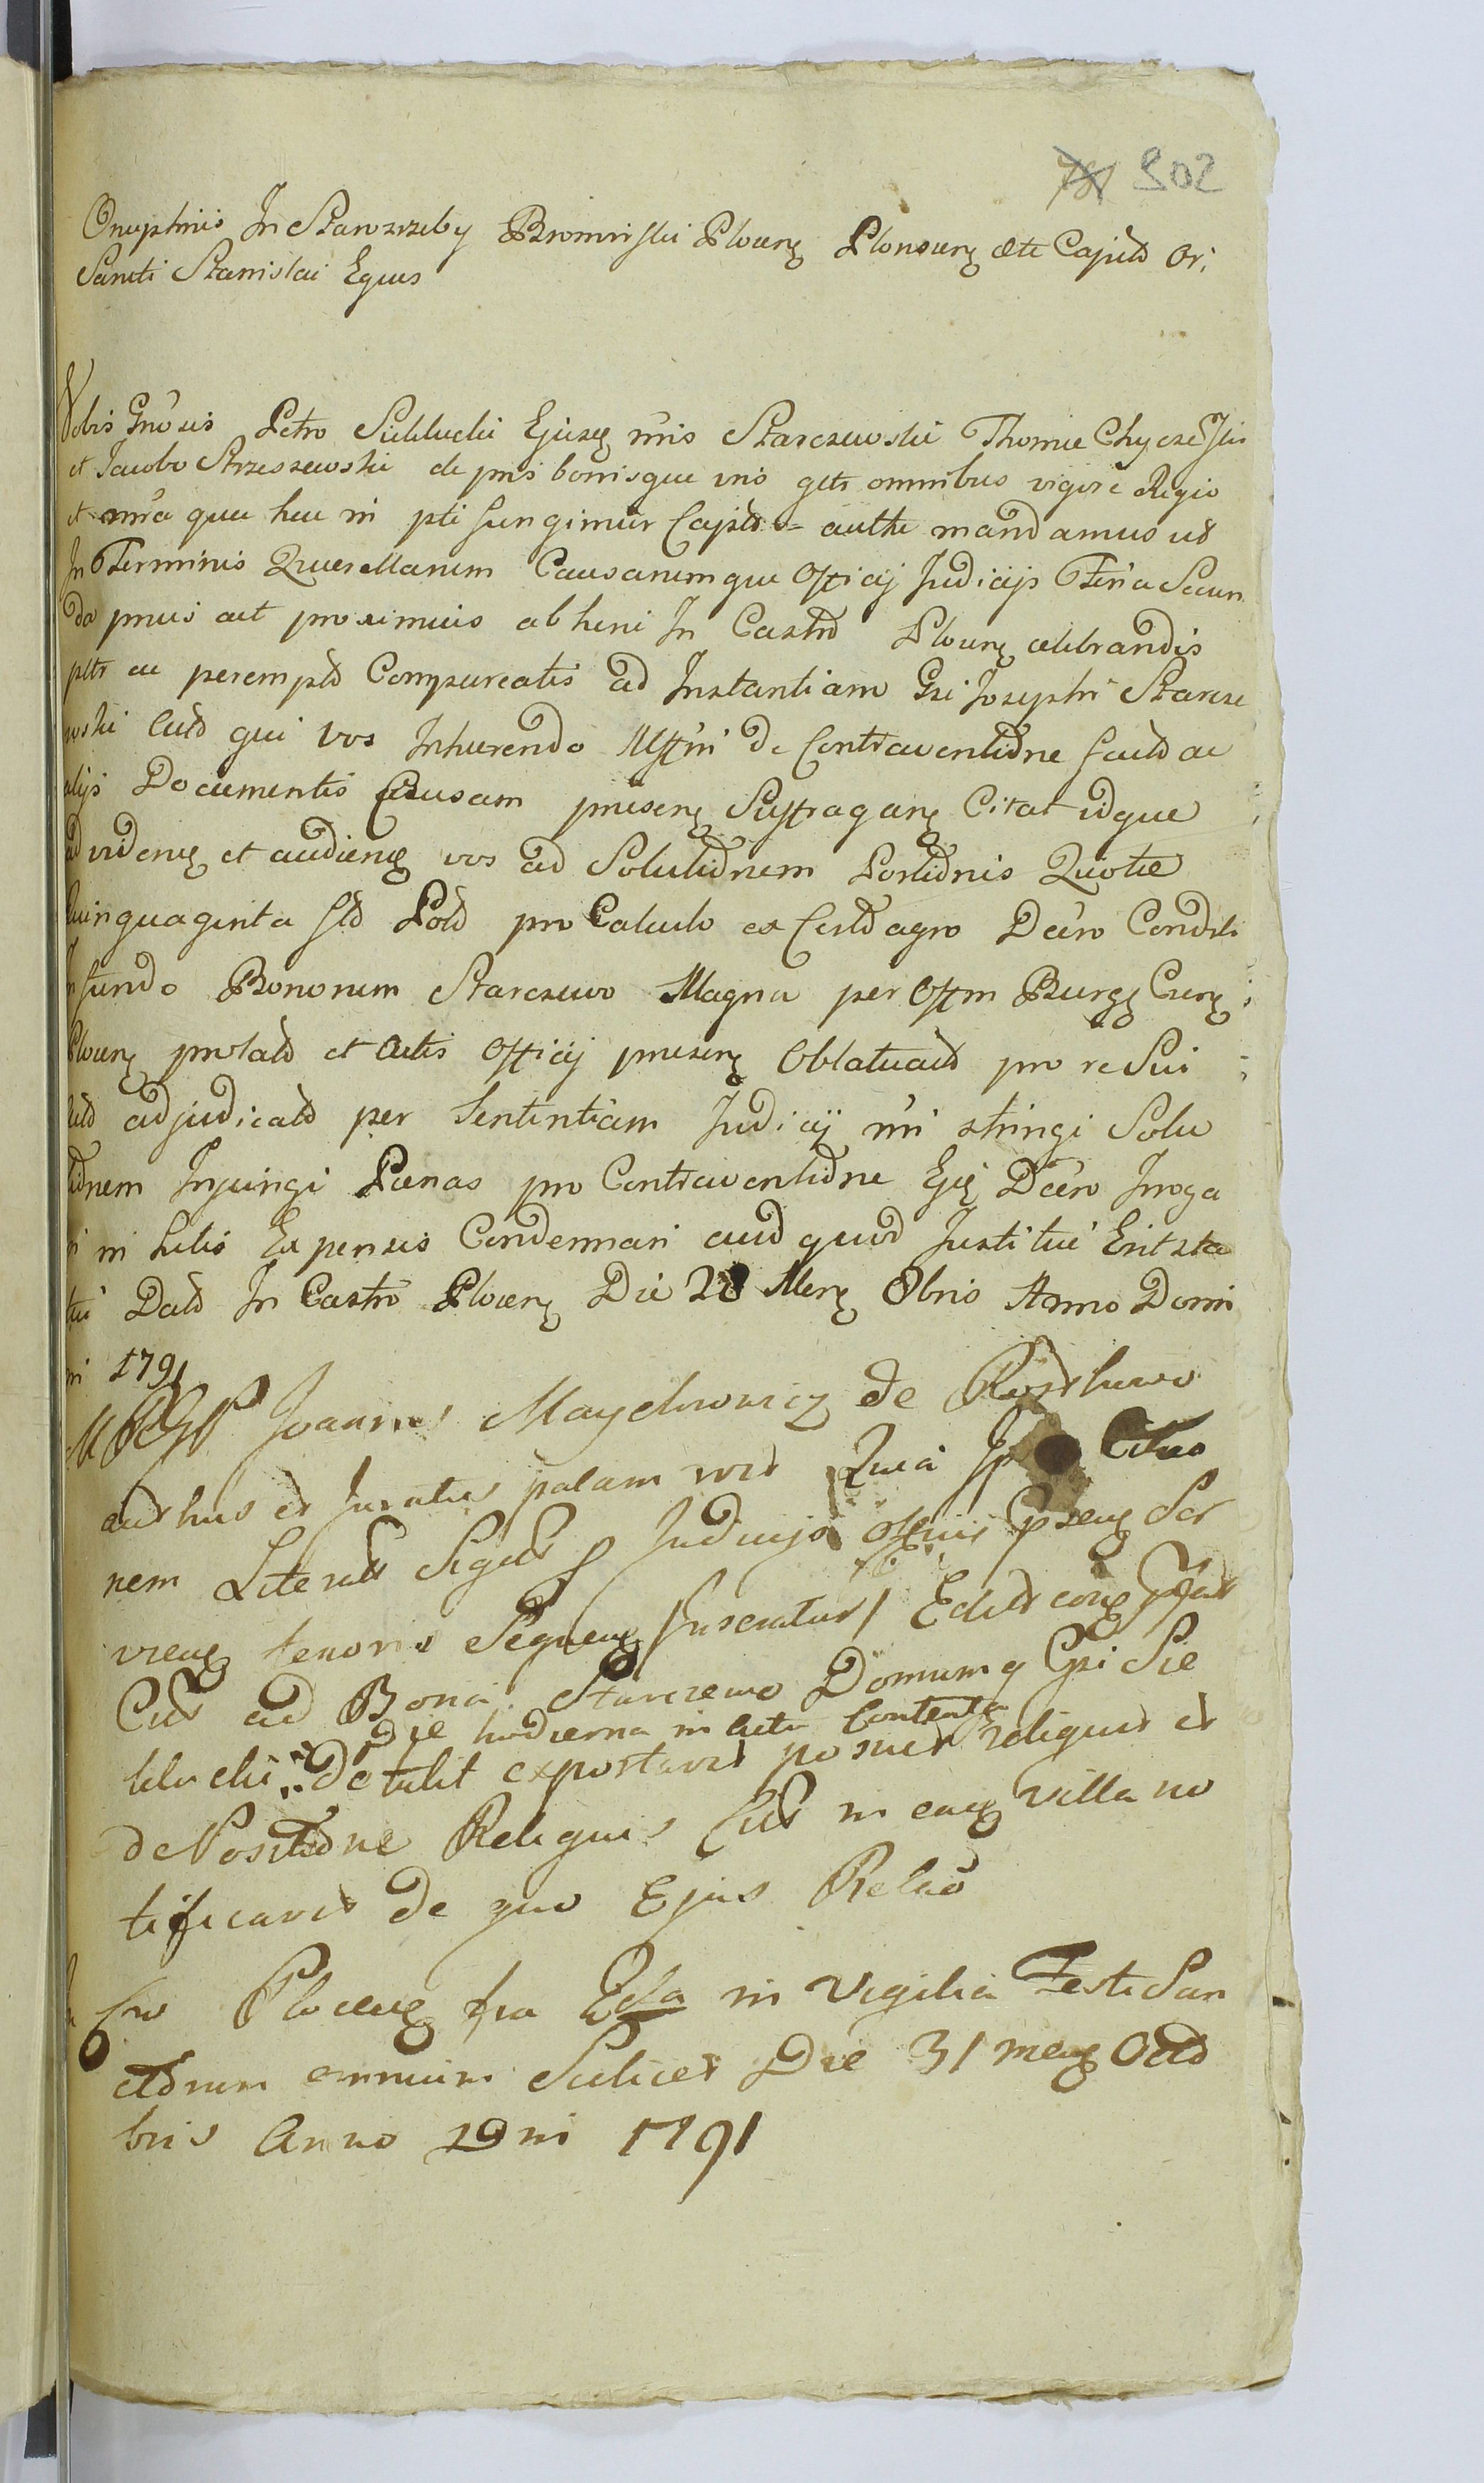 302
Onuphrius In Starozreby Bromirski Plocen Plonscen etc Capitd Or:
Sancti Stanislai Eques
Vobis Gnosis Petro Siekluchi Ejusq nris Starczewski Thomae
et Jacobo Strzeszewski de pnis bonisque vris gctr omnibus vigore Regio
et nra qua hac in pti fungimur Capitd authe mandamus ut
In Terminis Querellarum Causarumque Officij Judicijs Feria Secun
da pnus aut proximius ab hinc In Castro Plocen celebrandis
pltr ac peremptd Compareatis ad Instantiam Gsi Josephi Starcze
wski Citd qui vos Inhaerendo Mftni de Contraventidne factd ac
alijs Documentis Causam pnsen Suffragan Citat idque
ad viden et audien vos ad Solutidnem Portidnis Quotae
Quinquaginta fld Pold pro Calculo ex Certd agro Decro Condit
In fundo Bonorum Starczewo Magna per Offm Burg Csen
Plocen prolatd et Actis Officij pnsen Oblatuatd pro re Sui
adjudicatd per Sententiam Judicij nri stringi Solu
tidnem Injungi Paenas pro Contraventidne Ejq Decro Irroga
ri in Litis Expensis Condemnari aud quid Justitiae Erit sta
tui Datd In Castro Plocen Die 28 Men 8bris Anno Domi
ni 1791
Joannes Maychrowicz de
authus et Juratus palam rect Quia Citao
nem Literalr Judicijs Officij
tenoris Sequen Inseratur Edit
Citt ad Bona Starczewo Domumq Gsi Sie
die hodierna in actu Contenta
kluchi detulit exportavit posuit reliquit et
de Positidne Reliquis Citt in eaq villa no
tificavit de quo Ejus Relao
Cro Plocen fra 2da in Vigilia Festi San
ctdrum omnium Scilicet Die 31 mens Octd
bris Anno Dni 1791